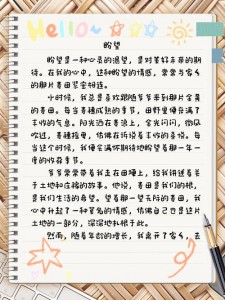 Hello~
盼望
盼望是一种心灵的渴望，是对美好未来的期
待。在我的心中，这种盼望的情感，常常与家乡
的那片麦田紧密相连。
小时候，我总喜欢跟随爷爷来到那片金黄
的麦田。每当麦穗成熟的季节，田野里便弥漫了
丰收的气息。阳光洒在麦浪上，金光闪闪，微风
吹过，麦穗摇曳，仿佛在诉说着丰收的喜悦。每
当这个时候，我便会满怀期待地盼望着那一年一
度的收获季节。
爷爷常常带着我走在田埂上，给我讲述着关
于土地和庄稼的故事。他说，麦田是我们的根，
是我们生活的希望。望着那一望无际的麦田，我
心中升起了一种莫名的情感，仿佛自己也是这片
土地的一部分，深深地扎根于此。
然而，随着年龄的增长，我离开了家乡，去